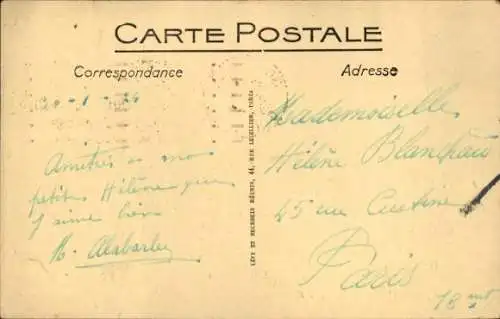 CARTE POSTALE
Correspondance
Adresse
Amitiés à ma
petite Hélène que
j'aime bien
Mademoiselle
Hélène
45 rue Custine
Paris
18
LÉVY ET NEURDEIN RÉUNIS, 44, RUE LETELLIER, PARIS